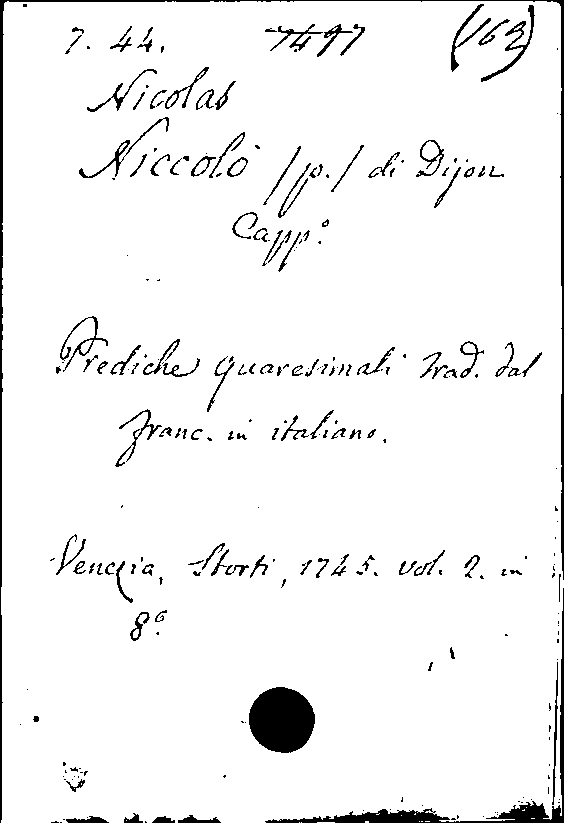 7. 44. 7497 (163)
Nicolas
Niccolò /p./ di Dijon
Capp.º
Prediche quaresimali trad. dal
franc. in italiano.
Venezia, Storti, 1745. vol. 2. in
8º.